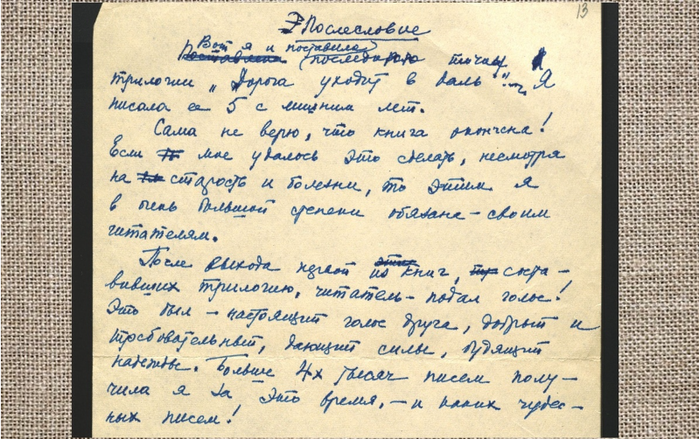 13
Э Послесловие
Вот я и поставила
Поставлена последнюю точку в
трилогии „Дорога уходит в даль"... Я
писала ее 5 с лишним лет.
Сама не верю, что книга окончена!
Если мне удалось это сделать, несмотря
на старость и болезни, то этим я
в очень большой степени обязана – своим
читателям.
После выхода первой из книг, состав-
вивших трилогию, читатель – подал голос!
Это был – настоящий голос друга, добрый и
требовательный, дающий силы, будящий
надежды. Больше 4х тысяч писем полу-
чила я за это время, – и каких чудес-
ных писем!